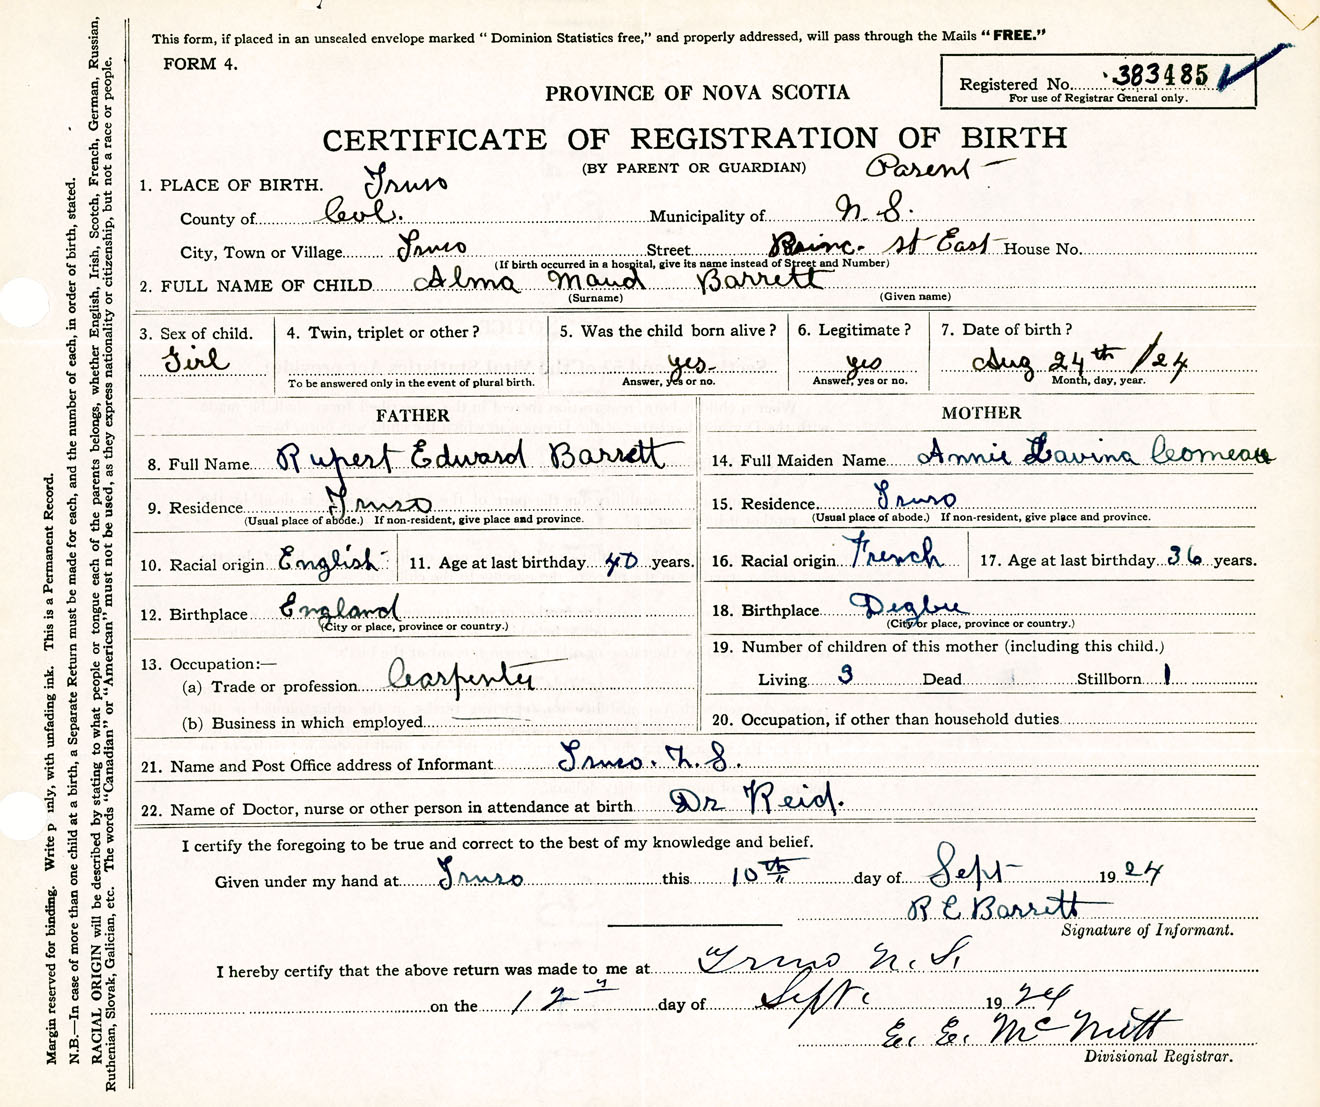 This form, if placed in an unsealed envelope marked "Dominion Statistics free," and properly addressed, will pass through the Mails "FREE."
FORM 4.
Registered No. 383485
For use of Registrar General only.
PROVINCE OF NOVA SCOTIA
CERTIFICATE OF REGISTRATION OF BIRTH
(BY PARENT OR GUARDIAN) Parent
1. PLACE OF BIRTH. Truro
County of Col. Municipality of N. S.
City, Town or Village Truro Street Princ. St East House No.
(If birth occurred in a hospital, give its name instead of Street and Number)
2. FULL NAME OF CHILD Alma Maud Barrett
(Surname) (Given name)
3. Sex of child. 4. Twin, triplet or other? 5. Was the child born alive? 6. Legitimate? 7. Date of birth?
Girl yes. yes Aug 24th /24
To be answered only in the event of plural birth. Answer, yes or no. Answer, yes or no. Month, day, year.
FATHER
8. Full Name Rupert Edward Barrett
9. Residence Truro
(Usual place of abode.) If non-resident, give place and province.
10. Racial origin English 11. Age at last birthday 40 years.
12. Birthplace England
(City or place, province or country.)
13. Occupation:—
(a) Trade or profession Carpenter
(b) Business in which employed
MOTHER
14. Full Maiden Name Annie Lavina Comeau
15. Residence Truro
(Usual place of abode.) If non-resident, give place and province.
16. Racial origin French 17. Age at last birthday 36 years.
18. Birthplace Degbie
(City or place, province or country.)
19. Number of children of this mother (including this child.)
Living 3 Dead Stillborn 1
20. Occupation, if other than household duties
21. Name and Post Office address of Informant Truro. N. S.
22. Name of Doctor, nurse or other person in attendance at birth Dr Reid.
I certify the foregoing to be true and correct to the best of my knowledge and belief.
Given under my hand at Truro this 10th day of Sept 1924
R E Barrett
Signature of Informant.
I hereby certify that the above return was made to me at Truro N. S.
on the 12 day of Sept. 1924
E. E. McNutt
Divisional Registrar.
Margin reserved for binding. Write p inly, with unfading ink. This is a Permanent Record.
N.B.—In case of more than one child at a birth, a Separate Return must be made for each, and the number of each, in order of birth, stated.
RACIAL ORIGIN will be described by stating to what people or tongue each of the parents belongs, whether English, Irish, Scotch, French, German, Russian,
Ruthenian, Slovak, Galician, etc. The words "Canadian" or "American" must not be used, as they express nationality or citizenship, but not a race or people.